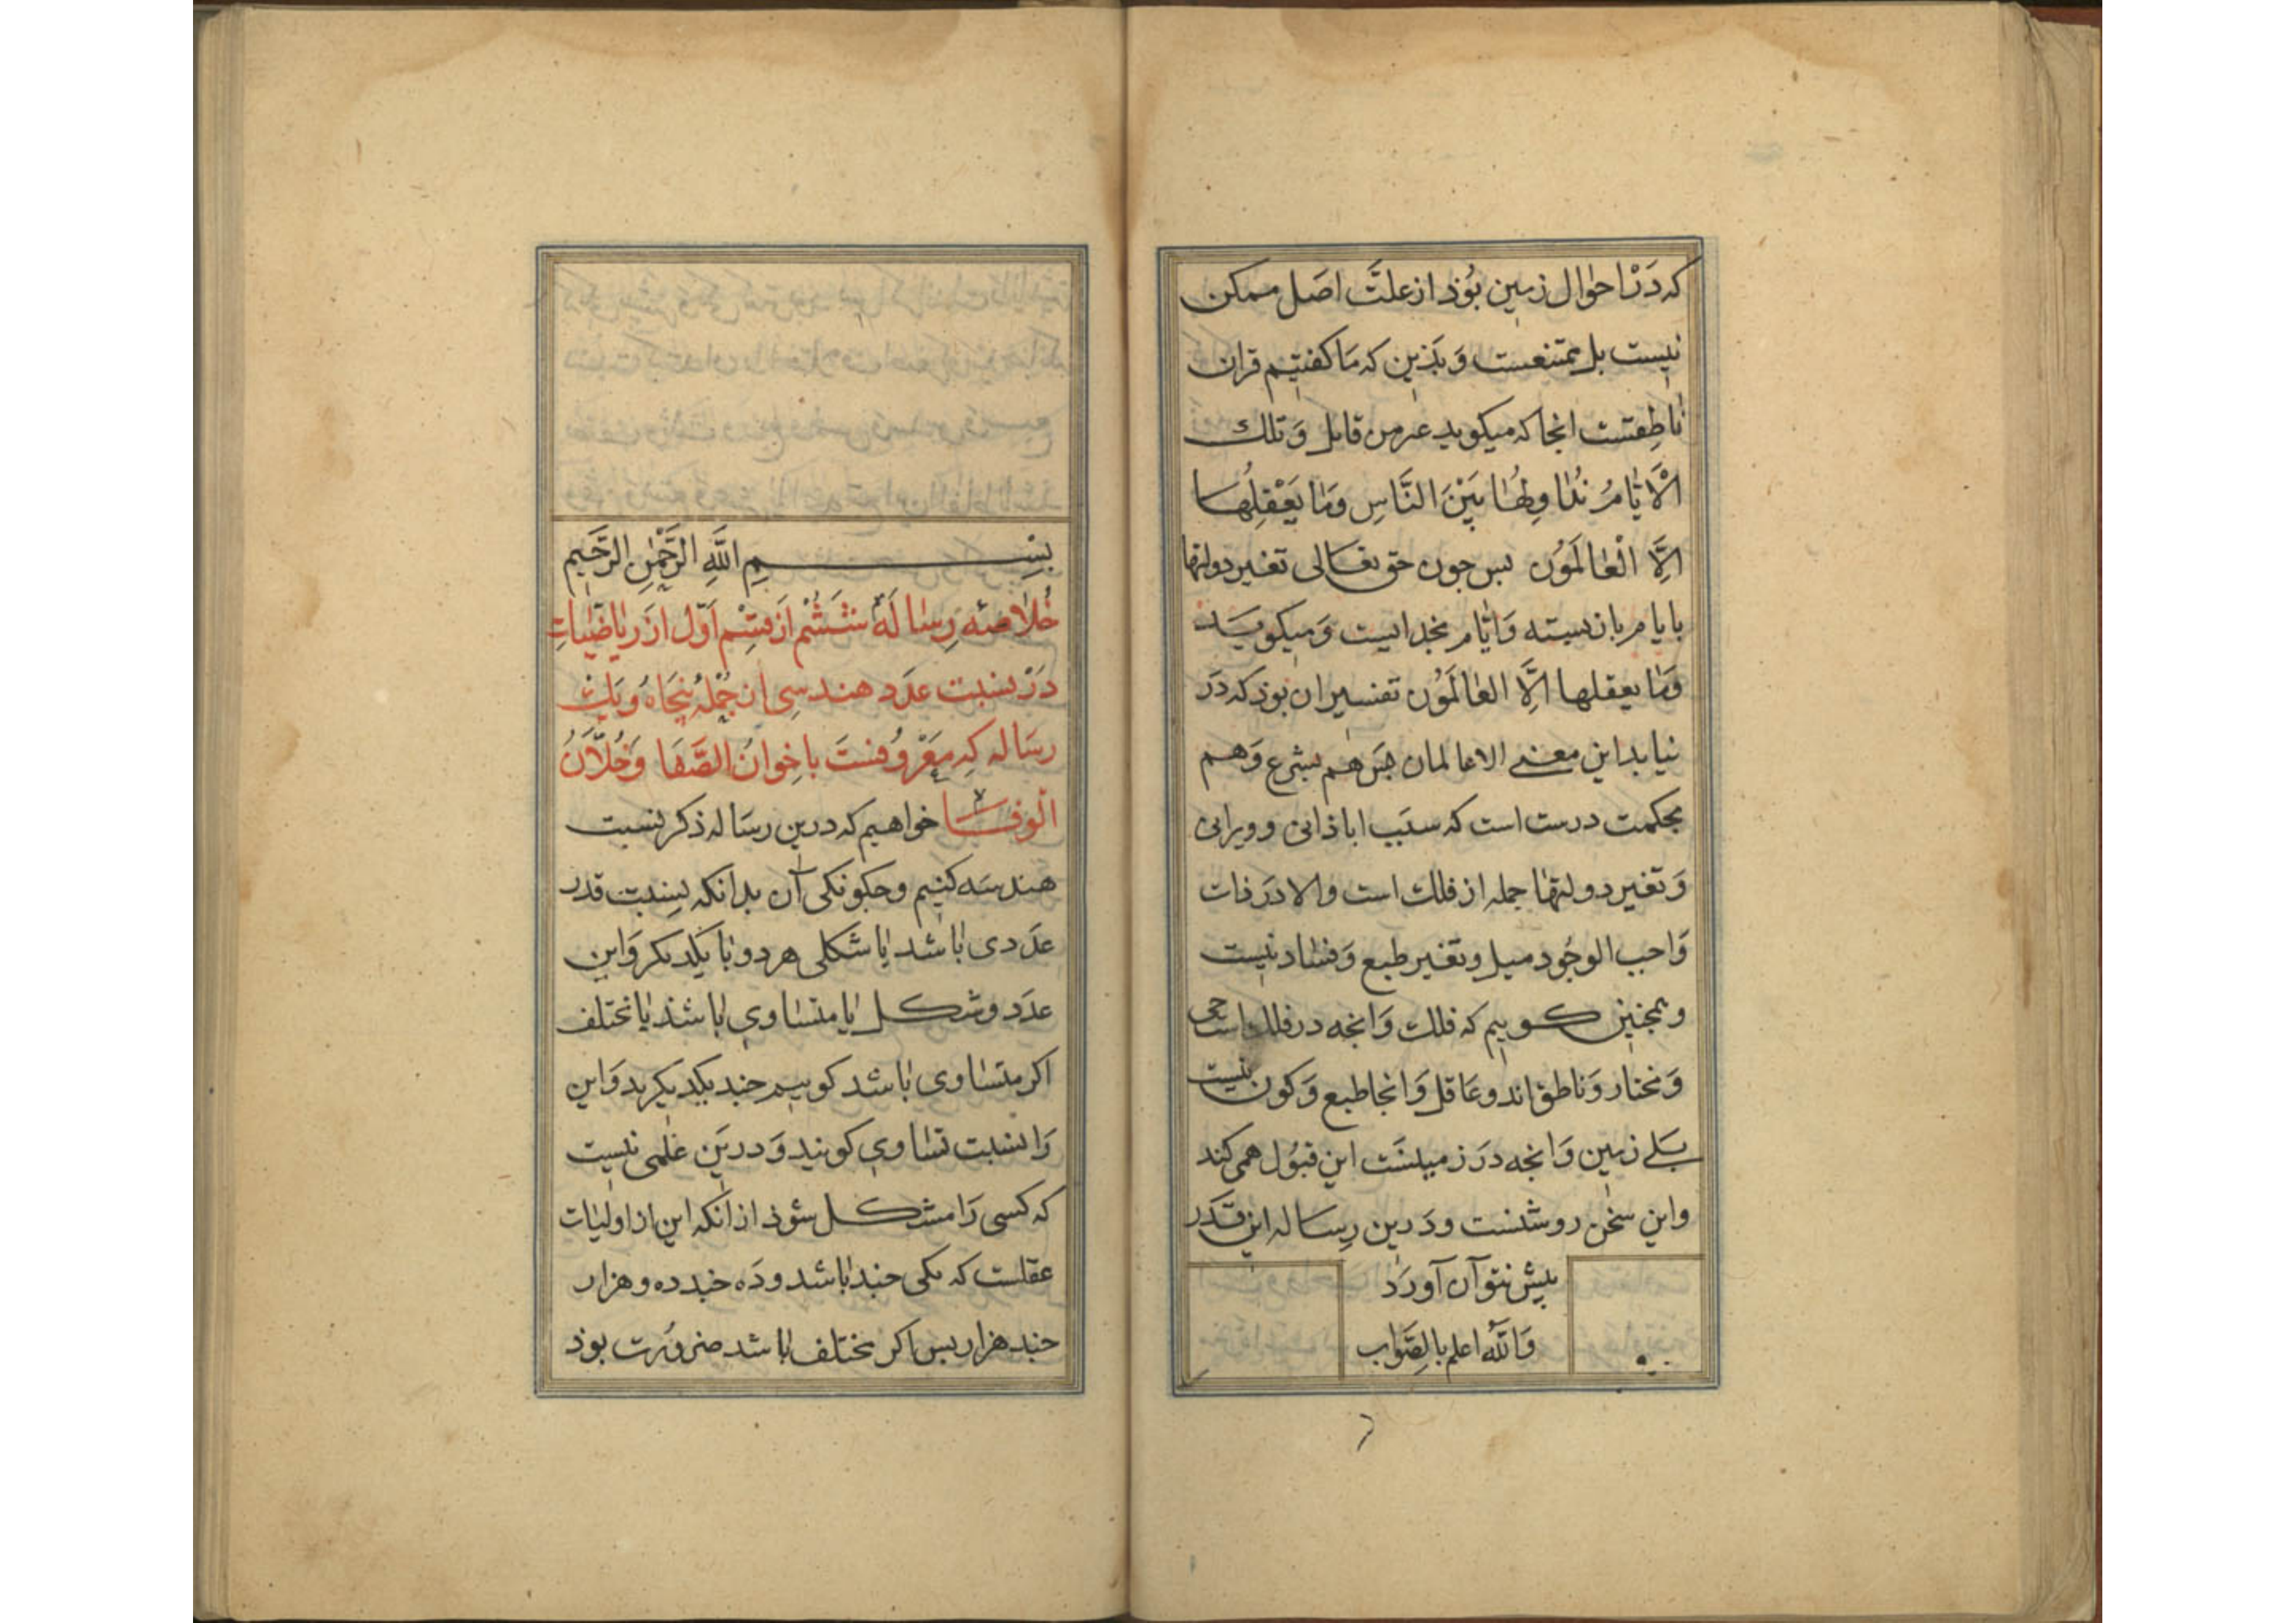 که دَرْ احوال زمین بوُذ از علتَّ اصَل ممکن
نیست بل ممتنعست وَ بَذین که مَا کفتیم قران
ناطِقست انجا که میکوید عز من قایل وَ تلك
الْأَیّٰامُ نُدٰاوِلُهٰا بَیْنَ النَّاسِ وَمٰا یَعْقِلُهٰا
اِلَّا الْعٰالَمُوُن بس جون حق تعالی تغیر دولتها
بایام باز بسته وَ ایّٰام بخدایست وَ میکویَد
وَمٰا یعقلها اِلَّا العٰالَمُوُن تفسیر ان بوذ که دَر
نیابد این معنی الا عالمان بس هم بشرع وَ هم
بحکمت درست است که سبَب اباذانی و ویرانی
وَ تغیر دولتهٰا جمله از فلك است و الا دَر ذات
وَاجب الوجُود میل و تغیر طبع وَ فسٰاد نیست
و همجنین کوییم که فلك وَ انجه در فلك است حی
وَ مختار وَ ناطق اند و عَاقل وَ انجا طبع وَ کون نیست
بَلی زمین وَ انجه دَر زمینسَت این قبوُل همی کند
و این سخُن روشنست و دَرین رِسٰاله این قَدَر
بیش نتوآن آورَد
وَاللّٰهُ اعلم بالصَّوٰاب
بِسْمِ اللَّهِ الرَّحْمٰنِ الرَّحَیم
خُلاٰصَهٔ رِسٰالَهٔ شَشُم اَز قِسْم اَوَّل ازَ رِیٰاضِیّٰاتِ
دَرْ نسبت عَدَد هندسِی از جُمْلهُ پنجَاهُ وَ یَك
رسَاله کِه مَعْرُوُفستَ باخِوانُ الصَّفَا وَ خُلّاَنُ
الْوفَا خواهیم که درین رسَاله ذکر نسبت
هندسَه کنیم و جکونکی آن بدانکه نِسبت قدر
عَدَدی بٰاشد یٰا شَکلی هر دو بٰا یَکدیکر وَ این
عدَد و شکل یٰا متسٰاوی بٰاشذ یٰا مختلف
اکر متسٰاوی بٰاشد کوییم جند یکدیکرند وَ این
رَا نسبت تسٰاوی کویند وَ درین عِلمی نیست
که کسی رَا مشکل شوُذ از انکه این از اولیّٰات
عقلست که یکی جند بٰاشد و دَه جند ده و هزار
جند هزار بس اکر مختلف بٰاشد ضروُرت بوذ